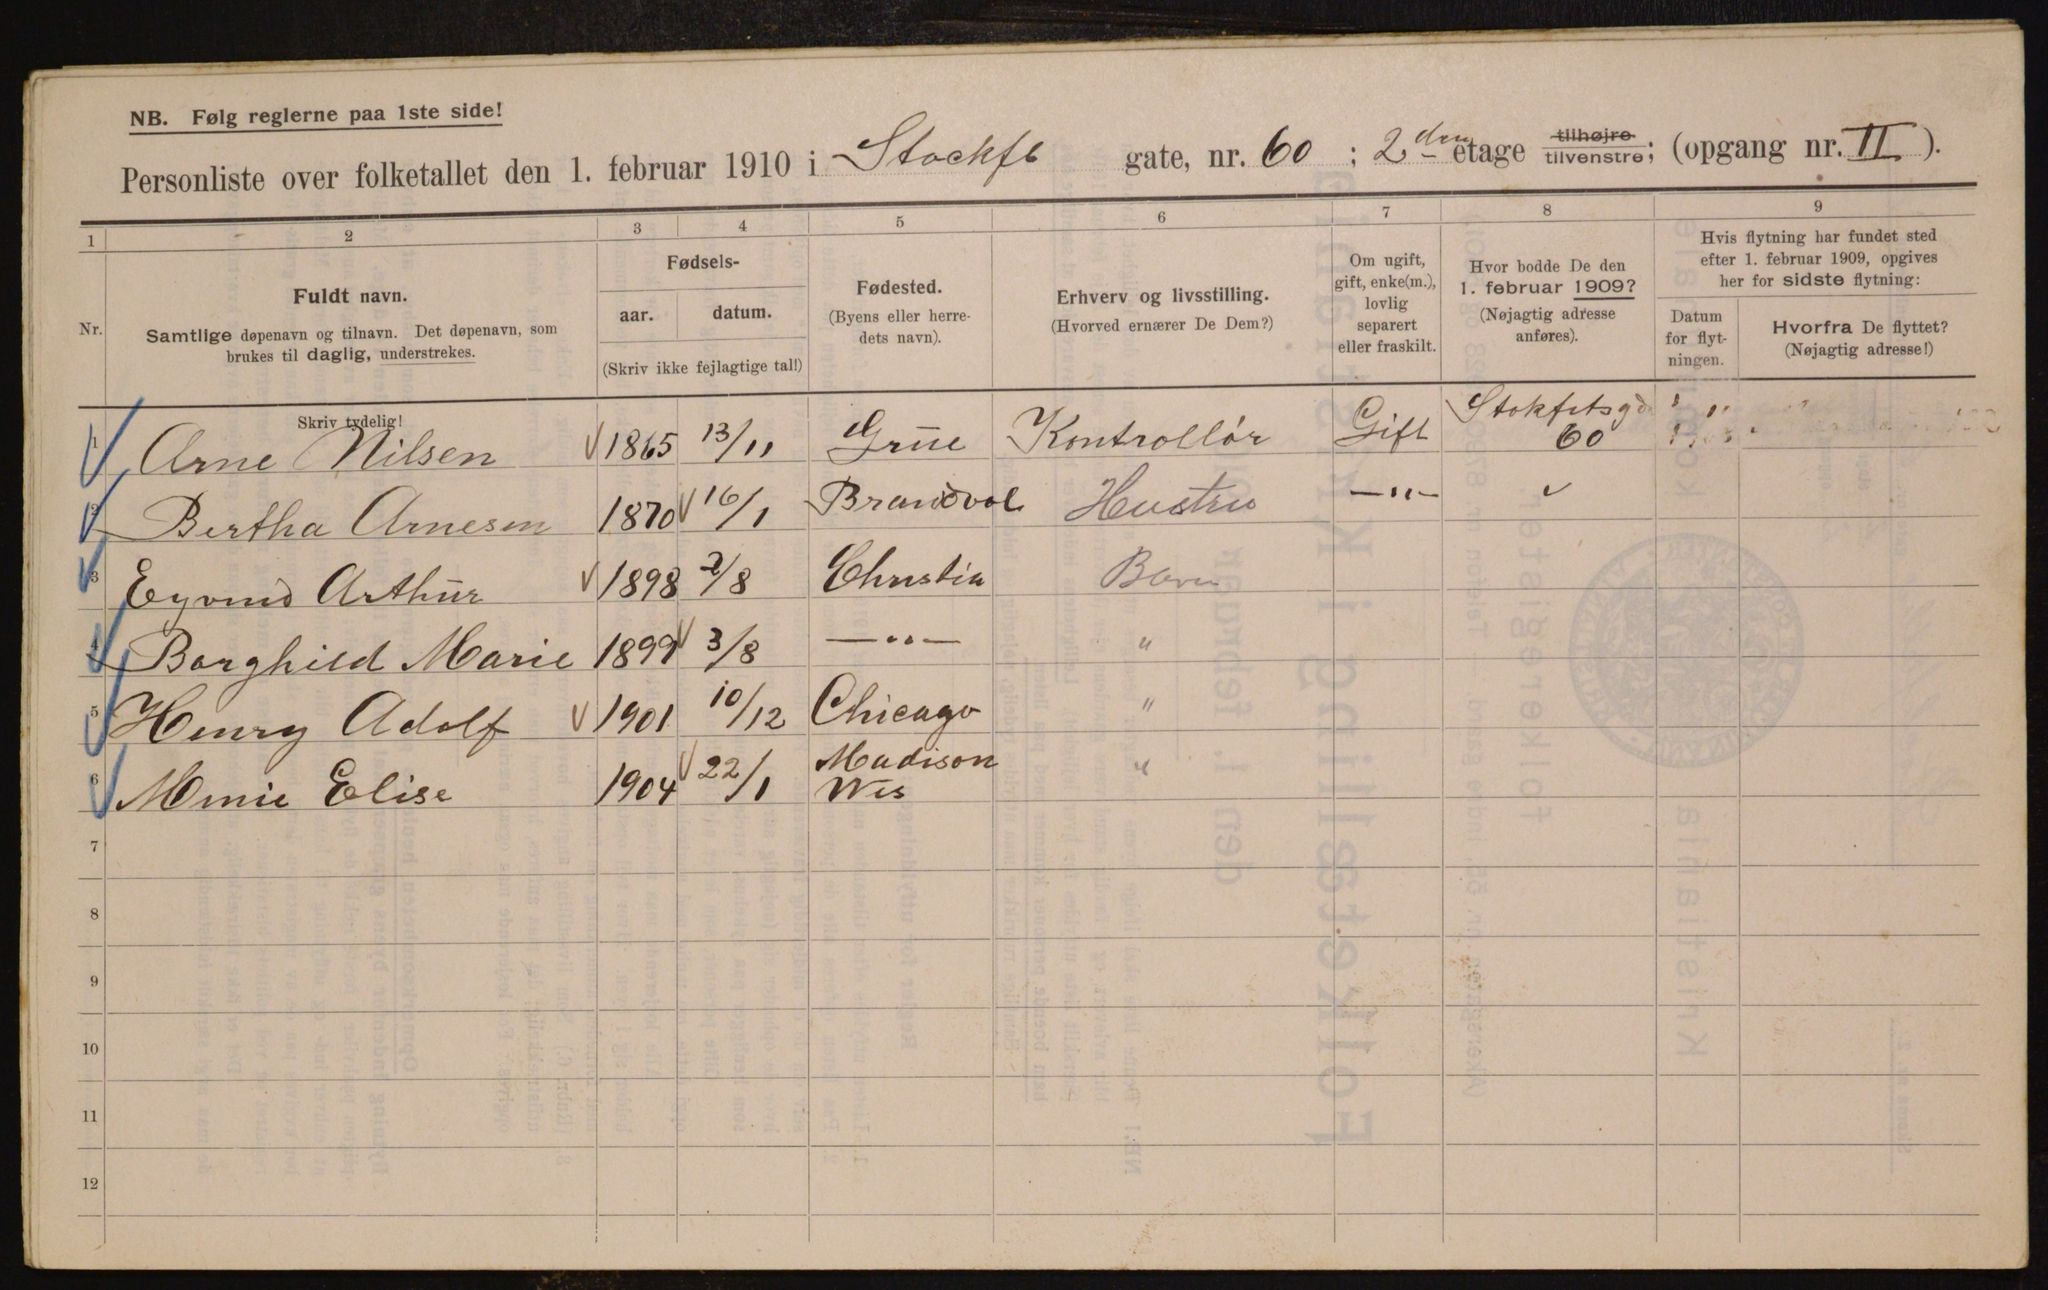 NB. Følg reglerne paa 1ste side!
Personliste over folketallet den 1. februar 1910 i Stockfl gate, nr. 60 ; 2den etage tilhøjre tilvenstre; (opgang nr. II ).
1 2 3 4 5 6 7 8 9
Nr.
Fuldt navn.
Samtlige døpenavn og tilnavn. Det døpenavn, som
brukes til daglig, understrekes.
Skriv tydelig!
Fødsels-
aar. datum.
(Skriv ikke fejlagtige tal!)
Fødested.
(Byens eller herre-
dets navn).
Erhverv og livsstilling.
(Hvorved ernærer De Dem?)
Om ugift,
gift, enke(m.),
lovlig
separert
eller fraskilt.
Hvor bodde De den
1. februar 1909?
(Nøjagtig adresse
anføres).
Hvis flytning har fundet sted
efter 1. februar 1909, opgives
her for sidste flytning:
Datum
for flyt-
ningen.
Hvorfra De flyttet?
(Nøjagtig adresse!)
1 Arne Nilsen 1865 13/11 Grue Kontrollør Gift Stokfletsgd 60
2 Bertha Arnesen 1870 16/1 Brandvol Hustru —"—
3 Eyvind Arthur 1898 2/8 Christia Barn
4 Borghild Marie 1899 3/8 —"— "
5 Henry Adolf 1901 10/12 Chicago "
6 Minie Elise 1904 22/1 Madison Wis "
7
8
9
10
11
12